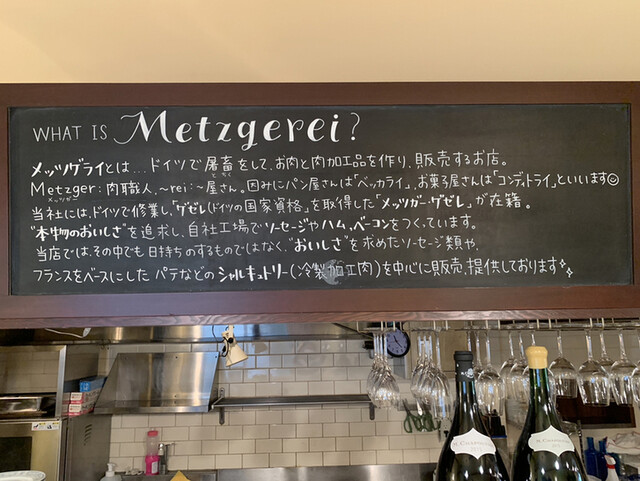 WHAT IS Metzgerei?
メッツゲライとは…ドイツで屠畜をして、お肉と肉加工品を作り、販売するお店。
とちく
Metzger:肉職人、~rei:~屋さん。因みにパン屋さんは「ベッカライ」、お菓子屋さんは「コンディトライ」といいます
メッツガー
当社には、ドイツで修業し、「ゲゼレ(ドイツの国家資格)」を取得した「メッツガーゲゼレ」が在籍。
"本物のおいしさ"を追求し、自社工場でソーセージやハム、ベーコンをつくっています。
当店では、その中でも日持ちのするものではなく、"おいしさ"を求めたソーセージ類や、
フランスをベースにしたパテなどのシャルキュトリー(冷製加工肉)を中心に販売、提供しております